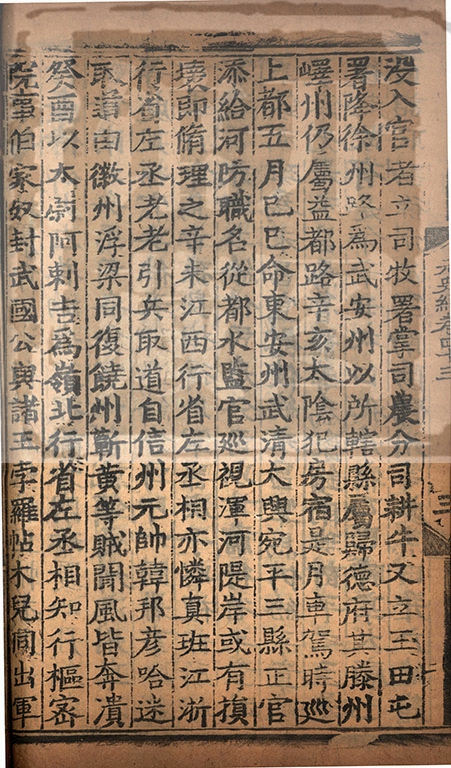 没入官者立司牧署掌司農分司耕牛又立玉田屯
署降徐州路為武安州以所轄縣屬歸德府其滕州
嶧州仍屬益都路辛亥太陰犯房宿是月車駕時巡
上都五月己巳命東安州武清大興宛平三縣正官
添給河防職名從都水監官巡視渾河隄岸或有損
壞即脩理之辛未江西行省左丞相亦憐真班江浙
行省左丞老老引兵取道自信州元帥韓邦彥哈迷
取道由徽州浮梁同復饒州蘄黃等賊聞風皆奔潰
癸酉以太尉阿剌吉為嶺北行省左丞相知行樞密
院事伯家奴封武國公與諸王孛羅帖木兒同出軍
元史紀卷四十三
三